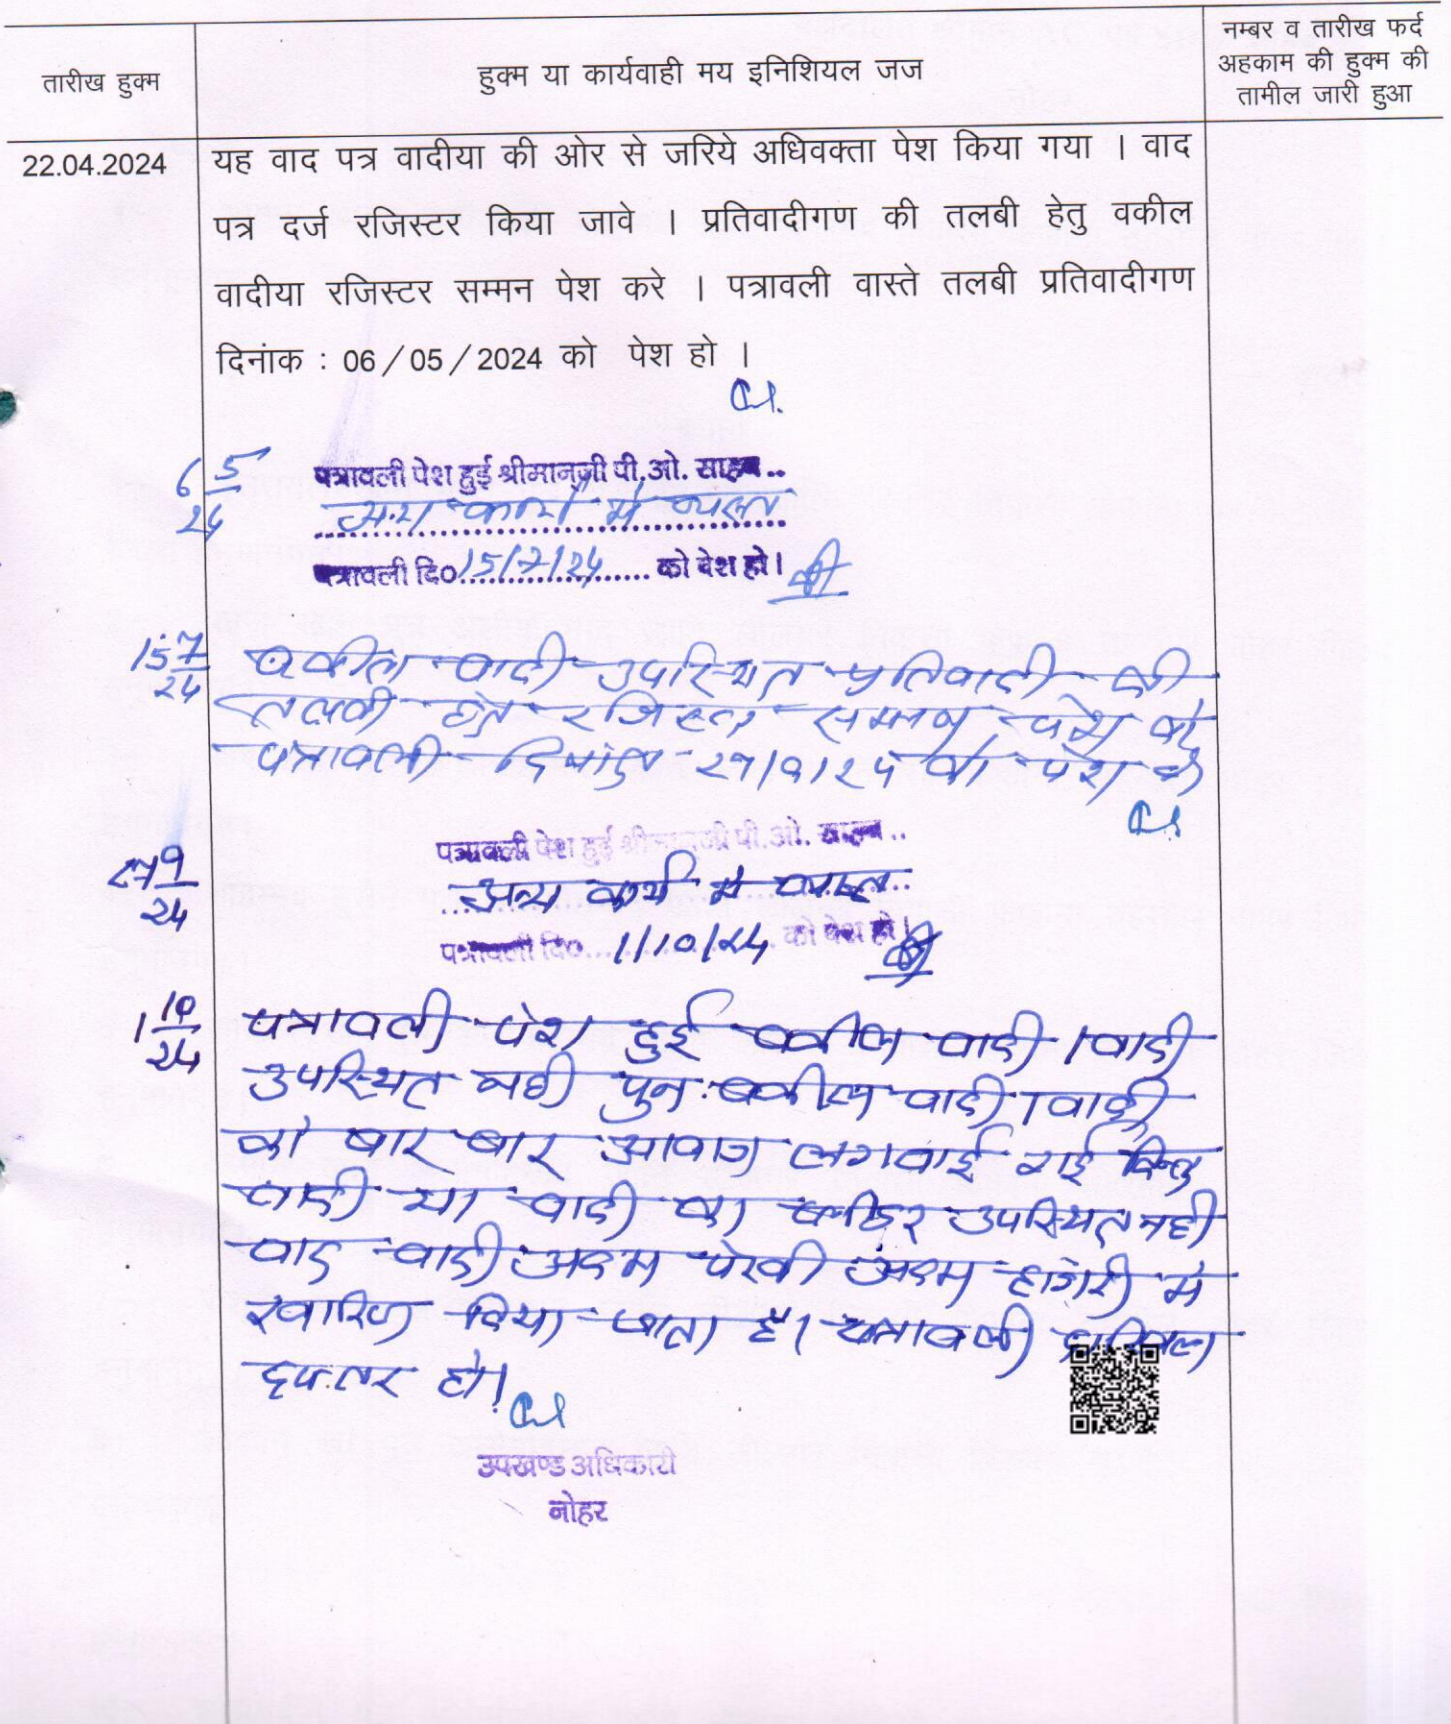 तारीख हुक्म
हुक्म या कार्यवाही मय इनिशियल जज
नम्बर व तारीख फर्द
अहकाम की हुक्म की
तामील जारी हुआ
22.04.2024
यह वाद पत्र वादीया की ओर से जरिये अधिवक्ता पेश किया गया । वाद
पत्र दर्ज रजिस्टर किया जावे । प्रतिवादीगण की तलबी हेतु वकील
वादीया रजिस्टर सम्मन पेश करे । पत्रावली वास्ते तलबी प्रतिवादीगण
दिनांक : 06/05/2024 को पेश हो ।
6 5/24
पत्रावली पेश हुई श्रीमानजी पी.ओ. साहब..
अन्य कार्यो मे व्यस्त
पत्रावली दि०15/7/24 को पेश हो।
15 7/24
वकील वादी उपस्थित प्रतिवादी की
तलबी हेतु रजिस्टर सम्मन पेश करे
पत्रावली दिनांक 27/9/24 को पेश हो
27 9/24
पत्रावली पेश हुई श्रीमानजी पी.ओ. साहब..
अन्य कार्य मे व्यस्त
पत्रावली दि० 1/10/24 को पेश हो।
1 10/24
पत्रावली पेश हुई वकील वादी / वादी
उपस्थित नही पुन: वकील वादी / वादी
को बार बार आवाज लगवाई गई किन्तु
वादी या वादी का प्लीडर उपस्थित नही
वाद वादी अदम पेरवी अदम हाजरी मे
खारिज किया जाता है। पत्रावली दाखिल
दफ्तर हो।
उपखण्ड अधिकारी
नोहर